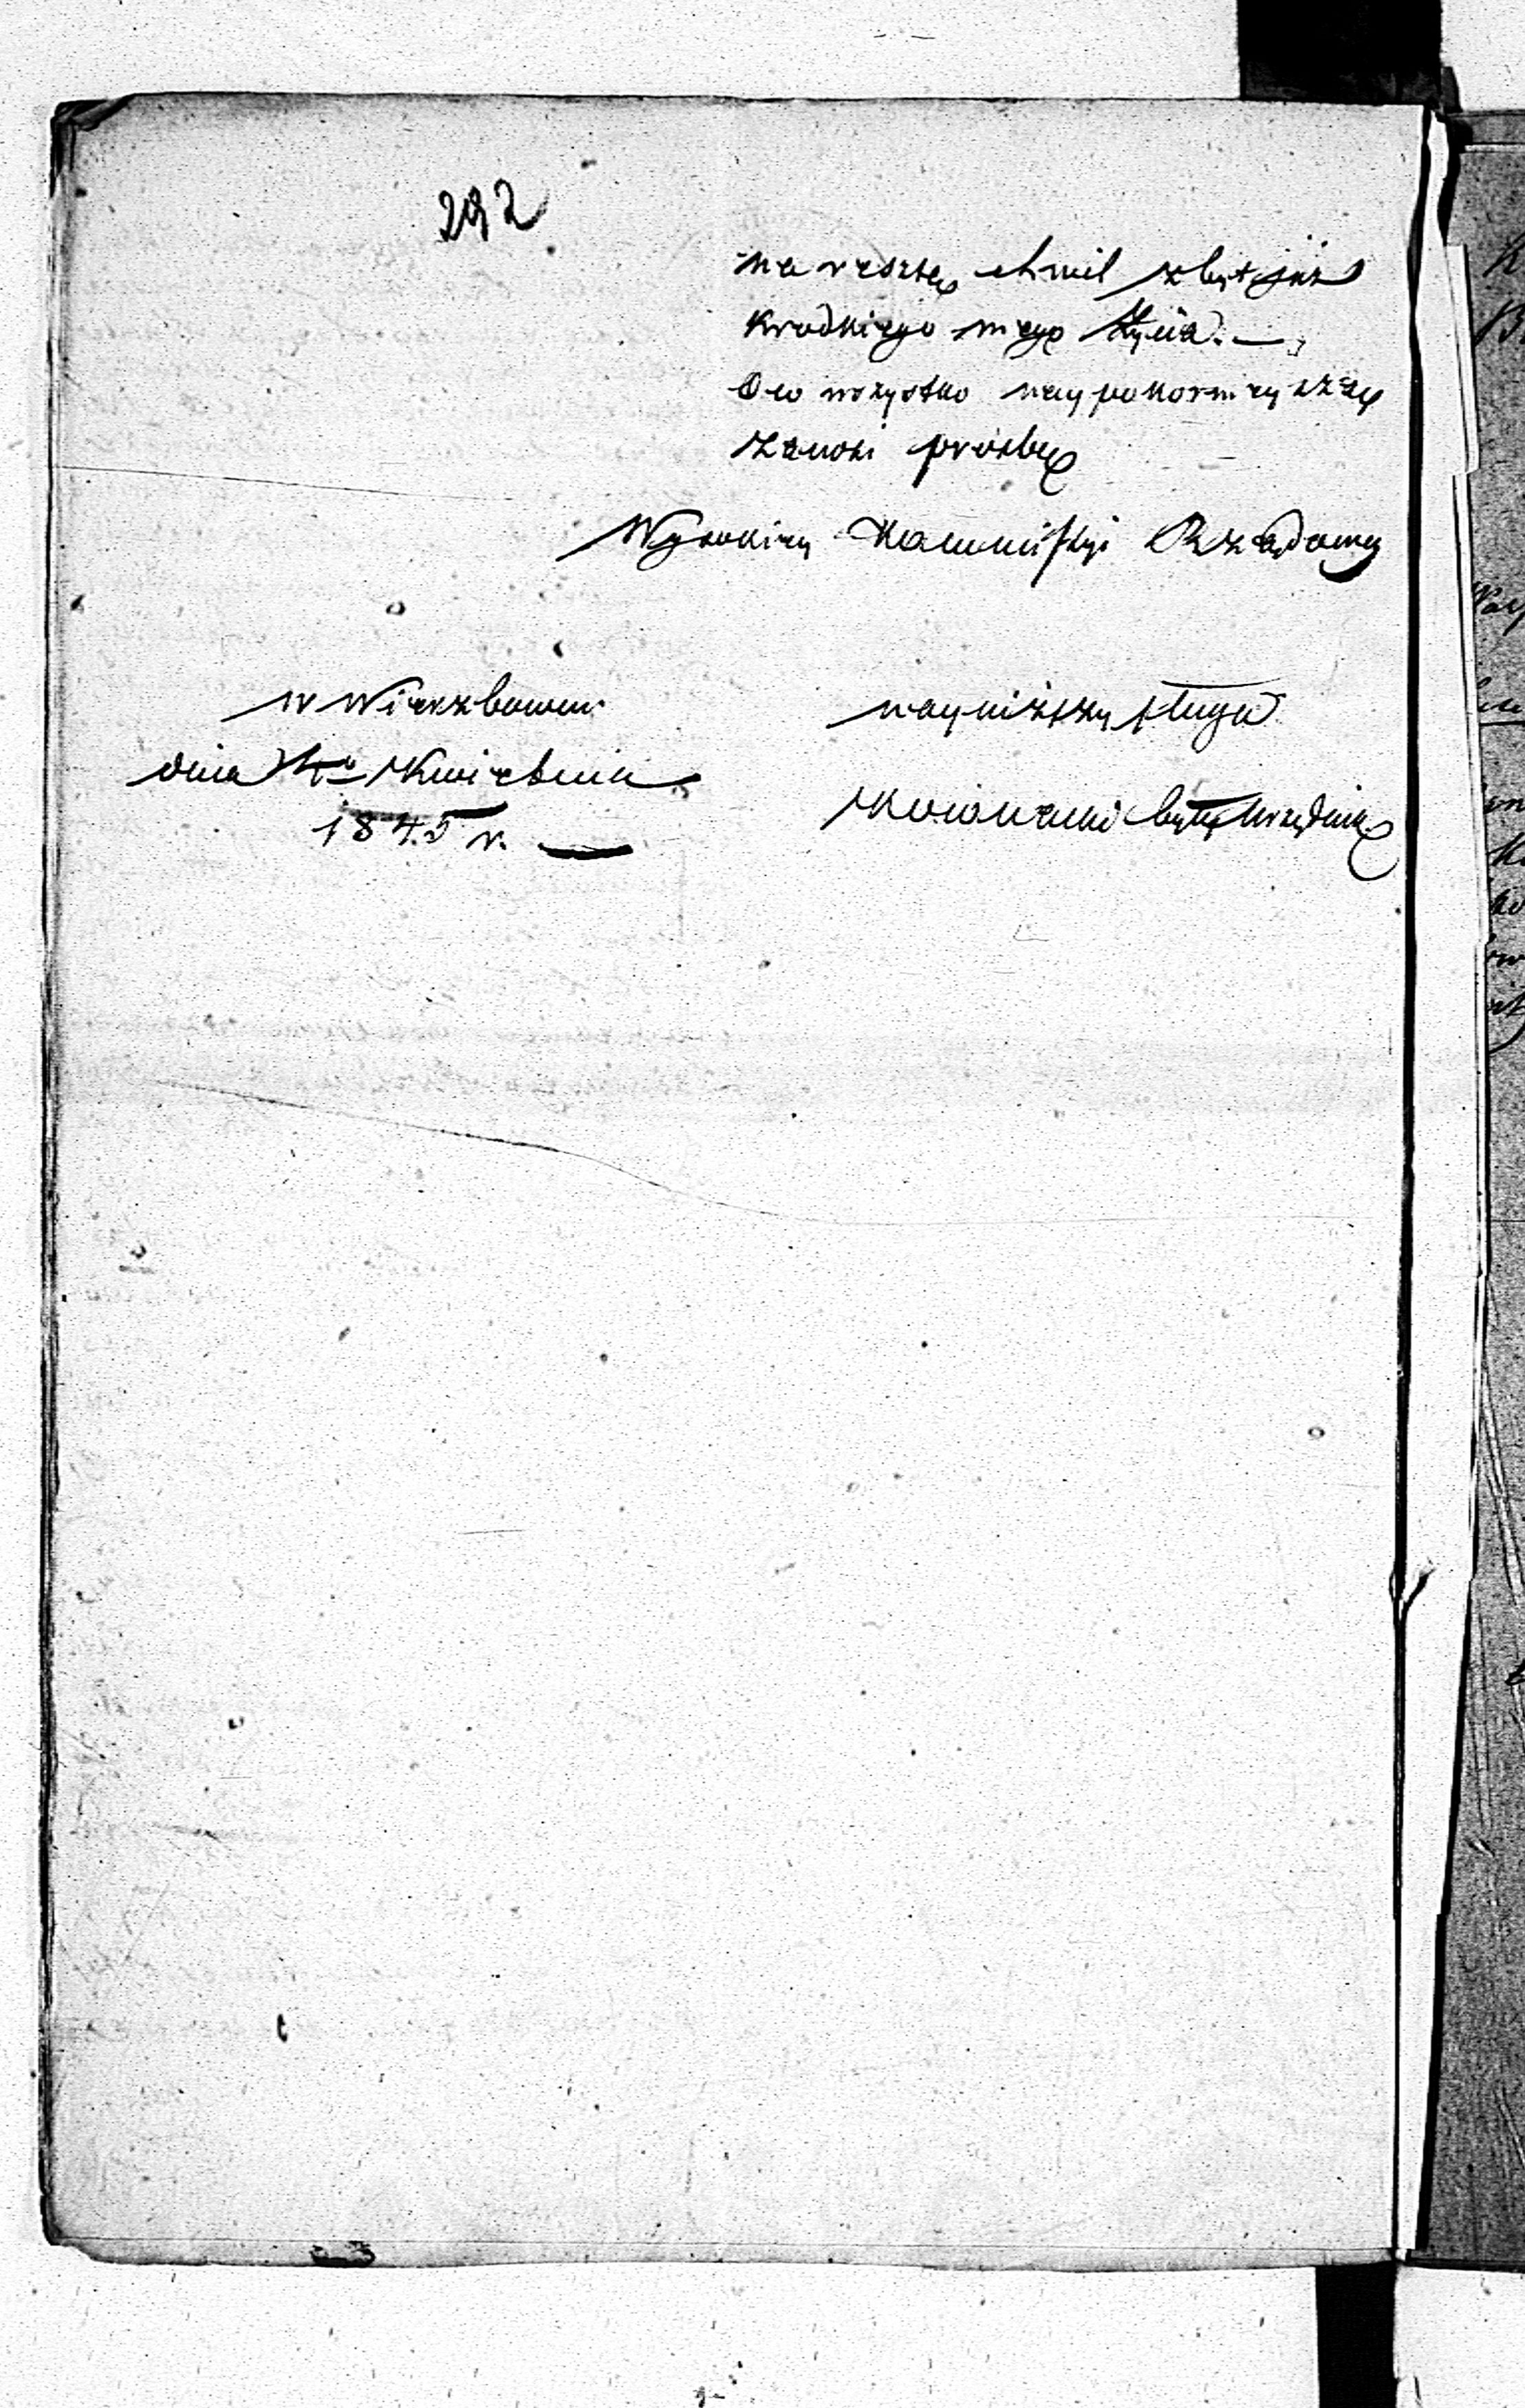 292
na resztę chwil zbyt już
krodkiego mego życia. —
O co wszystko naypokornieyszą
zanosi prośbę
Wysokiey Kommissyi Rządowey
w Wierzbowcu
dnia Kwietnia
1845 r. —
nayniższy sługa
były Urzędnik